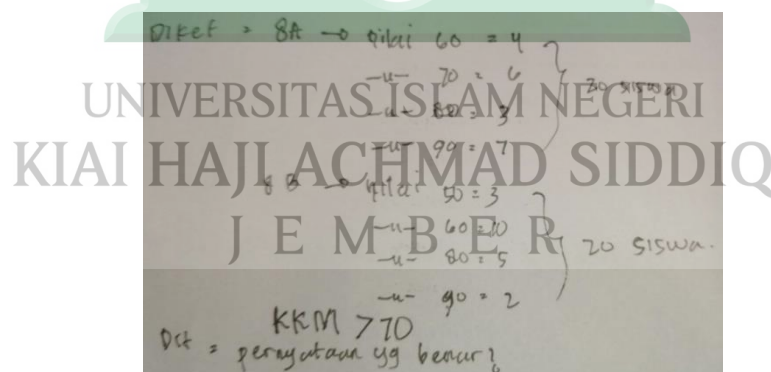 Diket = 8A → nilai 60 = 4
-u- 70 = 6
-u- 80 = 3
-u- 90 = 7
20 siswa
8B → nilai 50 = 3
-u- 60 = 10
-u- 80 = 5
-u- 90 = 2
20 siswa.
KKM > 70
Dit = pernyataan yg benar?
UNIVERSITAS ISLAM NEGERI
KIAI HAJI ACHMAD SIDDIQ
JEMBER